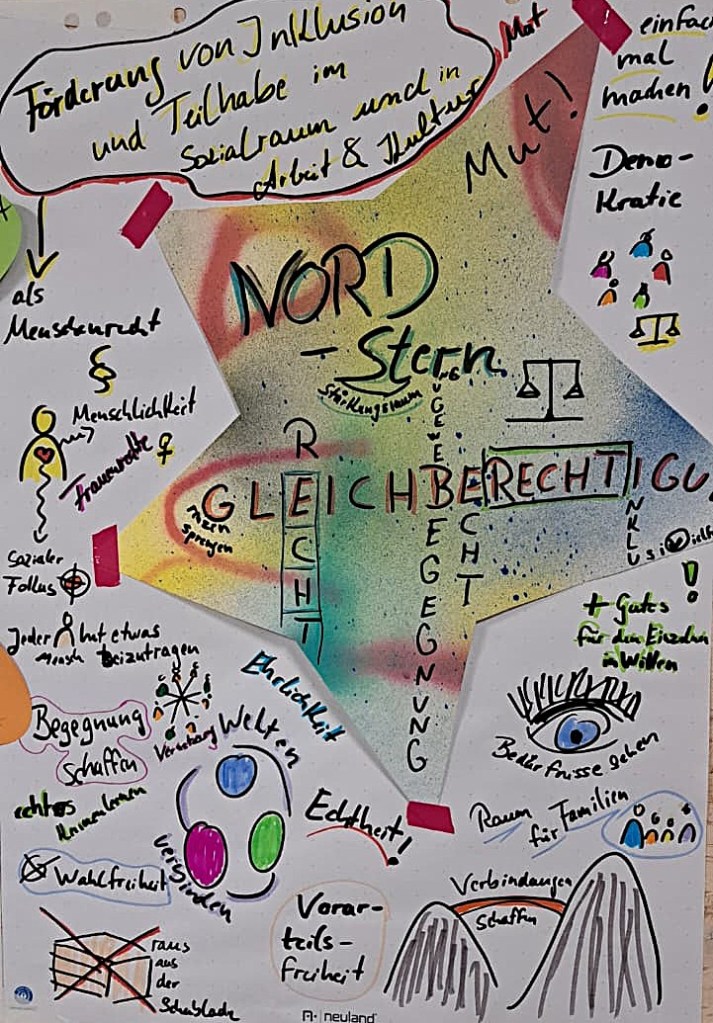 Förderung von Inklusion
und Teilhabe im
Sozialraum und in
Arbeit & Kultur
Mut
einfach
mal
machen!
Mut!
Demo-
kratie
als
Menschenrecht
§
NORD
- Stern
Stärkungsraum
Menschlichkeit
Frauenrechte ♀
GLEICHBERECHTIGU
RECHT
BEGEGNUNG
ECHT
INKLUSI
sprengen
Sozialer
Fokus
+ Gutes
für den Einzelnen
Jeder Mensch hat etwas
beizutragen
Begegnung
schaffen
Vernetzung
Ehrlichkeit
Welten
verbinden
Bedürfnisse sehen
echtes
Kennenlernen
Echtheit!
Raum
für Familien
Wahlfreiheit
Vorur-
teils-
freiheit
Verbindungen
schaffen
raus
aus
der
Schublade
neuland